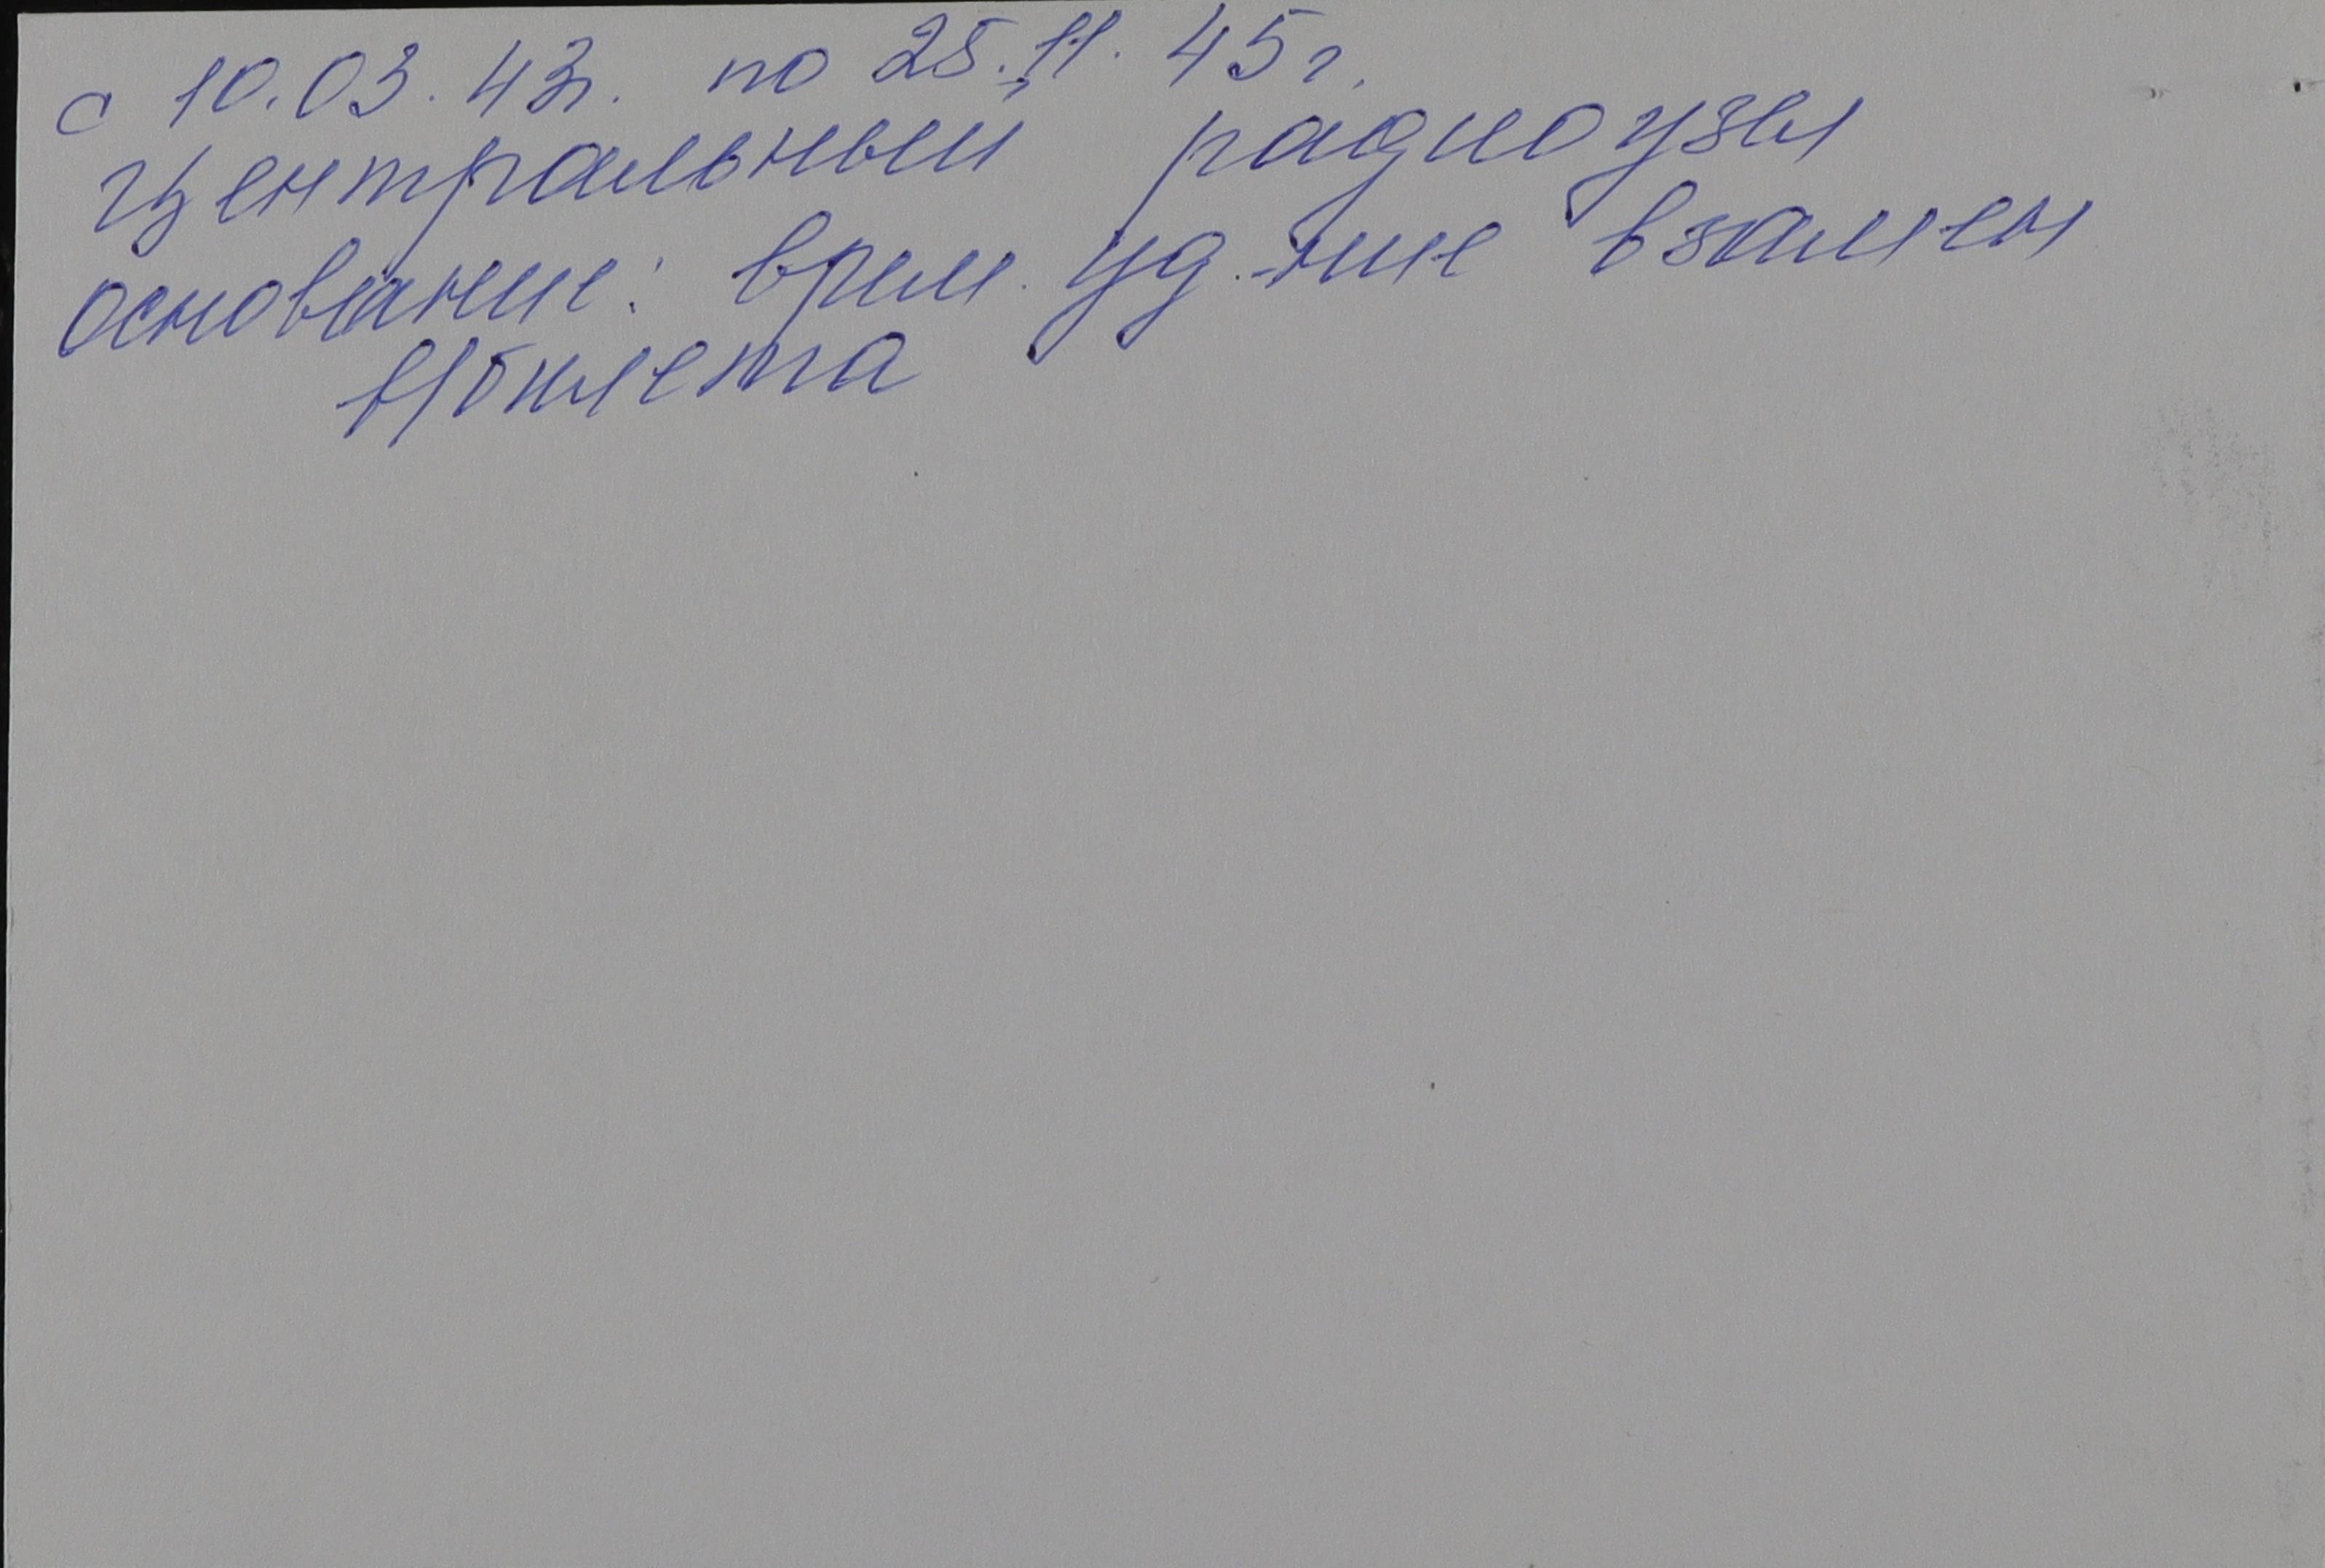 с 10.03.43г. по 25.11.45г.
центральный радиоузел
основание: врем. уд-ние взамен
в/билета